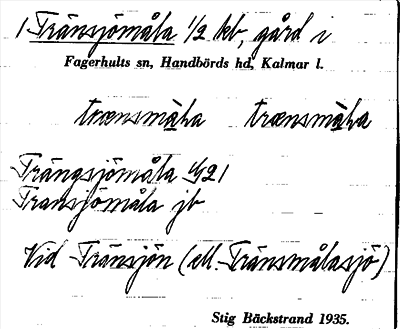 1 Transjömåla 1/2 kb, gård i
Fagerhults sn, Handbörds hd, Kalmar l.
trænsmåla trænsmåla
Trängsjömåla 1821
Transjömåla jb
Vid Tränsjön (ell. Tränsmålasjö)
Stig Bäckstrand 1935.